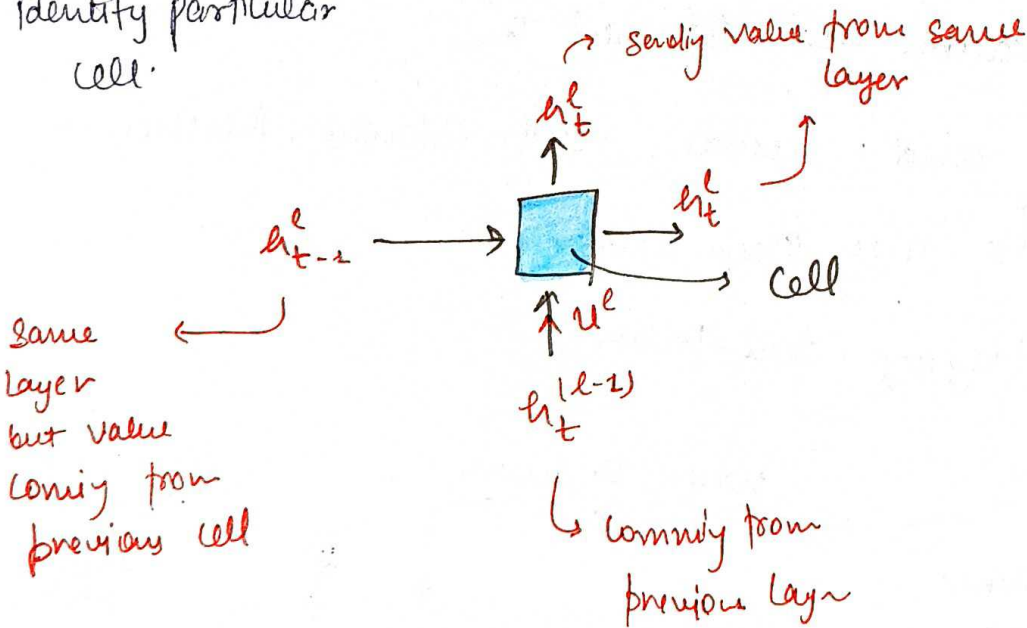 Identify particular
cell.
sendiy value from same
layer
h_t^l
h_t^l
h_{t-1}^l
cell
u^l
h_t^{(l-1)}
same
layer
but value
comiy from
previous cell
commiy from
previous layr